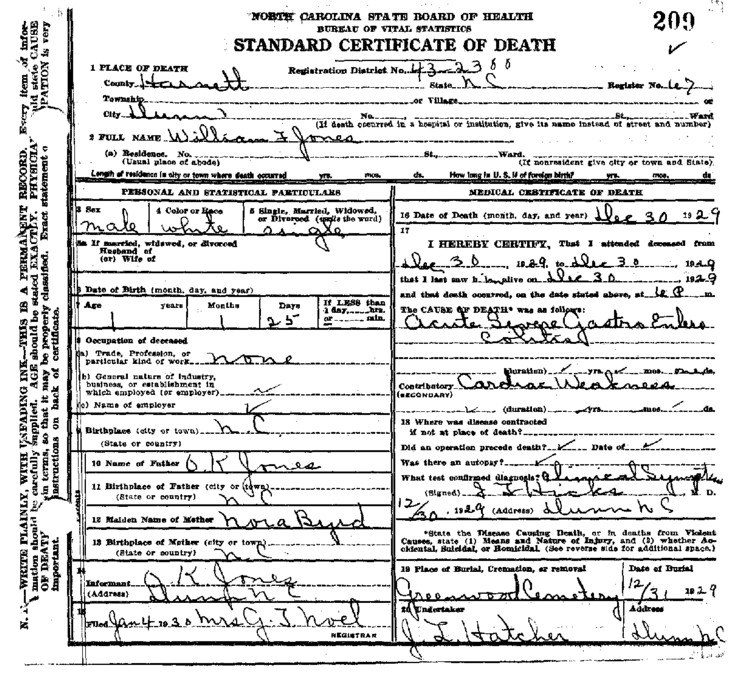 NORTH CAROLINA STATE BOARD OF HEALTH
BUREAU OF VITAL STATISTICS
209
STANDARD CERTIFICATE OF DEATH
1 PLACE OF DEATH Registration District No. 43-2388
County Harnett State N C Register No. 67
Township or Village or
City Dunn No. St., Ward
(If death occurred in a hospital or institution, give its name instead of street and number)
2 FULL NAME William F Jones
(a) Residence. No. St., Ward.
(Usual place of abode) (If nonresident give city or town and State)
Length of residence in city or town where death occurred yrs. mos. ds. How long in U. S. if of foreign birth? yrs. mos. ds
PERSONAL AND STATISTICAL PARTICULARS
3 Sex 4 Color or Race 5 Single, Married, Widowed, or Divorced (write the word)
male white single
5a If married, widowed, or divorced
Husband of
(or) Wife of
6 Date of Birth (month, day, and year)
7 Age years Months Days If LESS than 1 day, hrs. or min.
1 1 25
8 Occupation of deceased
(a) Trade, Profession, or
particular kind of work none
(b) General nature of Industry,
business, or establishment in
which employed (or employer)
(c) Name of employer
9 Birthplace (city or town) N C
(State or country)
10 Name of Father O K Jones
11 Birthplace of Father (city or town)
(State or country) N C
12 Maiden Name of Mother Nora Byrd
13 Birthplace of Mother (city or town)
(State or country) N C
14
Informant O. K Jones
(Address) Dunn N C
15
Filed Jan 4 1930 Mrs G. T. Noel
REGISTRAR
MEDICAL CERTIFICATE OF DEATH
16 Date of Death (month, day, and year) Dec 30 1929
17
I HEREBY CERTIFY, That I attended deceased from
Dec 30, 1929, to Dec 30 1929
that I last saw h im alive on Dec 30 1929
and that death occurred, on the date stated above, at 6 P m.
The CAUSE OF DEATH* was as follows:
Acute Severe Gastro Entero
Colitis
(duration) yrs. mos. one ds.
Contributory Cardiac Weakness
(SECONDARY)
(duration) yrs. mos. ds.
18 Where was disease contracted
if not at place of death?
Did an operation precede death? Date of
Was there an autopsy?
What test confirmed diagnosis? Clinical Symptoms
(Signed) J. D.
12/30, 1929 (Address) Dunn N C
*State the Disease Causing Death, or in deaths from Violent
Causes, state (1) Means and Nature of Injury, and (2) whether Ac-
cidental, Suicidal, or Homicidal. (See reverse side for additional space.)
19 Place of Burial, Cremation, or removal Date of Burial
Greenwood Cemetery 12/31 1929
20 Undertaker Address
J. L. Hatcher Dunn N C
N. B.—WRITE PLAINLY, WITH UNFADING INK—THIS IS A PERMANENT RECORD. Every item of infor-
mation should be carefully supplied. AGE should be stated EXACTLY. PHYSICIA uld state CAUSE
OF DEAT in terms, so that it may be properly classified. Exact statement o PATION is very
important. instructions on back of certificate.